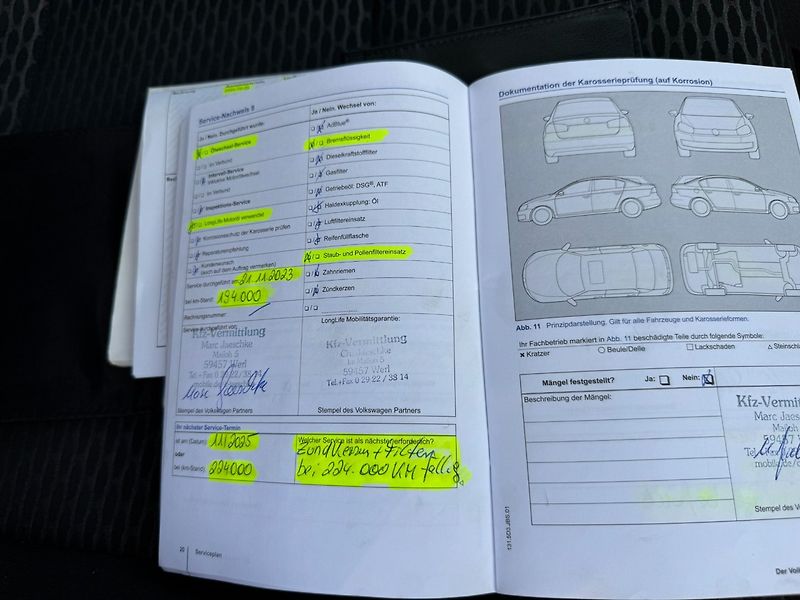 Service-Nachweis 5
Ja / Nein. Durchgeführt wurde:
Ölwechsel-Service
im Verbund
Intervall-Service
inklusive Motorölwechsel
im Verbund
Inspektions-Service
LongLife Motoröl verwendet
Korrosionsschutz der Karosserie prüfen
Reparaturempfehlung
Kundenwunsch
(siehe auch auf dem Auftrag vermerken)
Service durchgeführt am: 21.11.2023
bei km-Stand: 194.000
Rechnungsnummer:
Service durchgeführt von:
Kfz-Vermittlung
Marc Jaeschke
Maifoh 5
59457 Werl
Tel.+Fax 0 29 22 / 38 14
mobile.de/
Stempel des Volkswagen Partners
Ja / Nein. Wechsel von:
AdBlue®
Bremsflüssigkeit
Dieselkraftstofffilter
Gasfilter
Getriebeöl: DSG®, ATF
Haldexkupplung: Öl
Luftfiltereinsatz
Reifenfüllflasche
Staub- und Pollenfiltereinsatz
Zahnriemen
Zündkerzen
LongLife Mobilitätsgarantie:
Kfz-Vermittlung
59457 Werl
Tel.+Fax 0 29 22 / 38 14
Stempel des Volkswagen Partners
Ihr nächster Service-Termin
ist am (Datum): 11/2025
oder
bei (km-Stand): 224000
Welcher Service ist als nächster erforderlich?
Zündkerzen + Filter
bei 224.000 KM fällig
20 Serviceplan
Dokumentation der Karosserieprüfung (auf Korrosion)
Abb. 11 Prinzipdarstellung. Gilt für alle Fahrzeuge und Karosserieformen.
Ihr Fachbetrieb markiert in Abb. 11 beschädigte Teile durch folgende Symbole:
× Kratzer ○ Beule/Delle □ Lackschaden △ Steinschl
Mängel festgestellt? Ja: Nein:
Beschreibung der Mängel:
Kfz-Vermitt
Marc Jae
Maifoh
59457
Tel
mobile.de/
Stempel des Volks
131.5D3.JBS.01
Der Vol